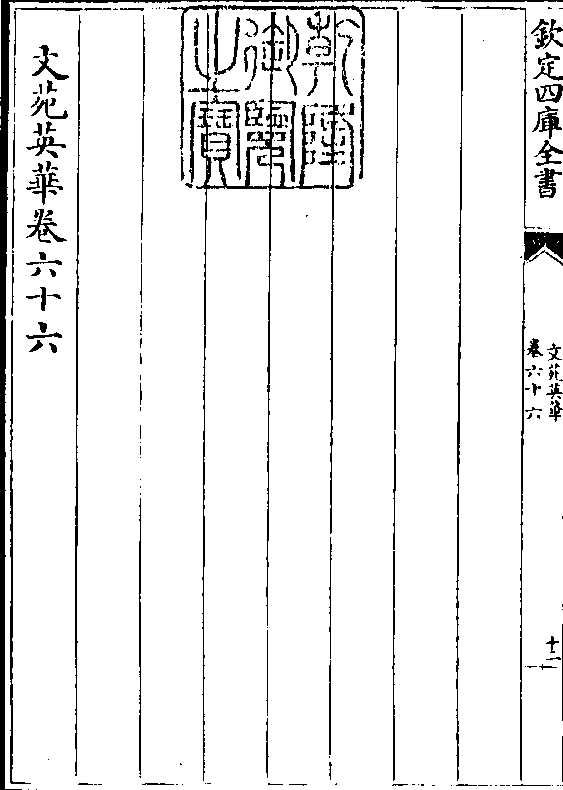 欽定四庫全書
文苑英華
卷六十六
十二
乾隆御覽之寶
文苑英華卷六十六